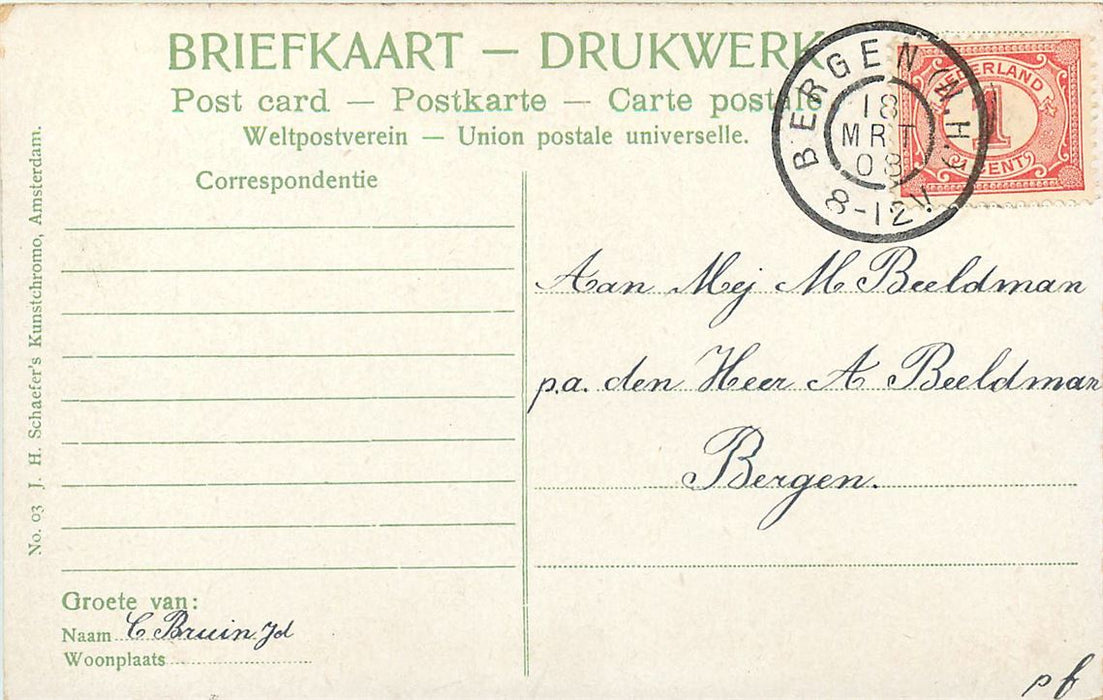 BRIEFKAART — DRUKWERK
Post card — Postkarte — Carte postale
Weltpostverein — Union postale universelle.
BERGEN (N.H.)
18
MRT
08
8-12V
NEDERLAND
1
CENT
Correspondentie
Aan Mej M Beeldman
p.a. den Heer A Beeldman
Bergen.
Groete van:
Naam C Bruin Jd
Woonplaats
No. 03 J. H. Schaefer's Kunstchromo, Amsterdam.
pf